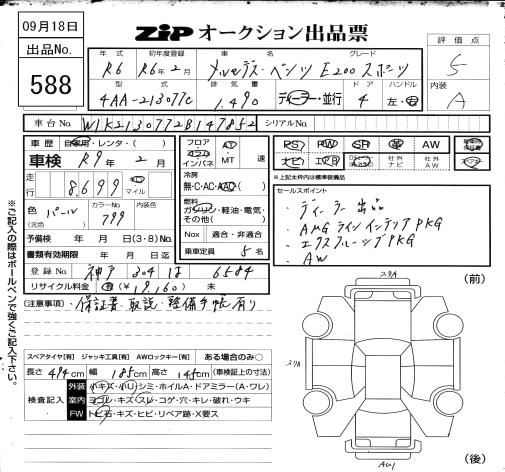 09月18日
出品No.
588
ZiP オークション出品票
年式 初年度登録 車名 グレード
R6 R6年2月 メルセデス・ベンツ E200スポーツ
型式 排気量 ドア ハンドル
4AA-213077C 1,490 ディーラー・並行 4 左・右
評価点
5
内装
A
車台No. W1K2130772B147852 シリアルNo.
車歴 自家用・レンタ・( )
車検 R9年2月
走行 8,699 マイル
色 パール カラーNo. 799 内装色
(元色)
予備検 年 月 日(3・8)No.
書類有効期限 年 月 日迄
登録No. 神戸 304 は 6584
リサイクル料金 (¥19,160) 未
フロア AT
コラム
インパネ MT 速
冷房
無・C・AC・AAC
燃料
ガソリン・軽油・電気・
その他( )
Nox 適合・非適合
乗車定員 5名
PS PW SR 革 AW
ナビ エアB TV 社外ナビ 社外AW
※上記太枠内は標準装備品
セールスポイント
・ディーラー出品
・AMGラインインテリアPKG
・エクスクルーシブPKG
・AW
注意事項・保証書・取説・整備手帳有り
※ご記入の際はボールペンで強くご記入下さい。
スペアタイヤ[有] ジャッキ工具[有] AWロックキー[有] ある場合のみ○
長さ 494cm 幅 185cm 高さ 145cm (車検証上の寸法)
検査記入
外装 小キズ・小U・シミ・ホイルA・ドアミラー(A・ワレ)
室内 ヨゴレ・キズ・スレ・コゲ・穴・キレ・破れ・ウキ
FW トビ石・キズ・ヒビ・リペア跡・X要ス
(前)
スリA
スリA
AU1
(後)